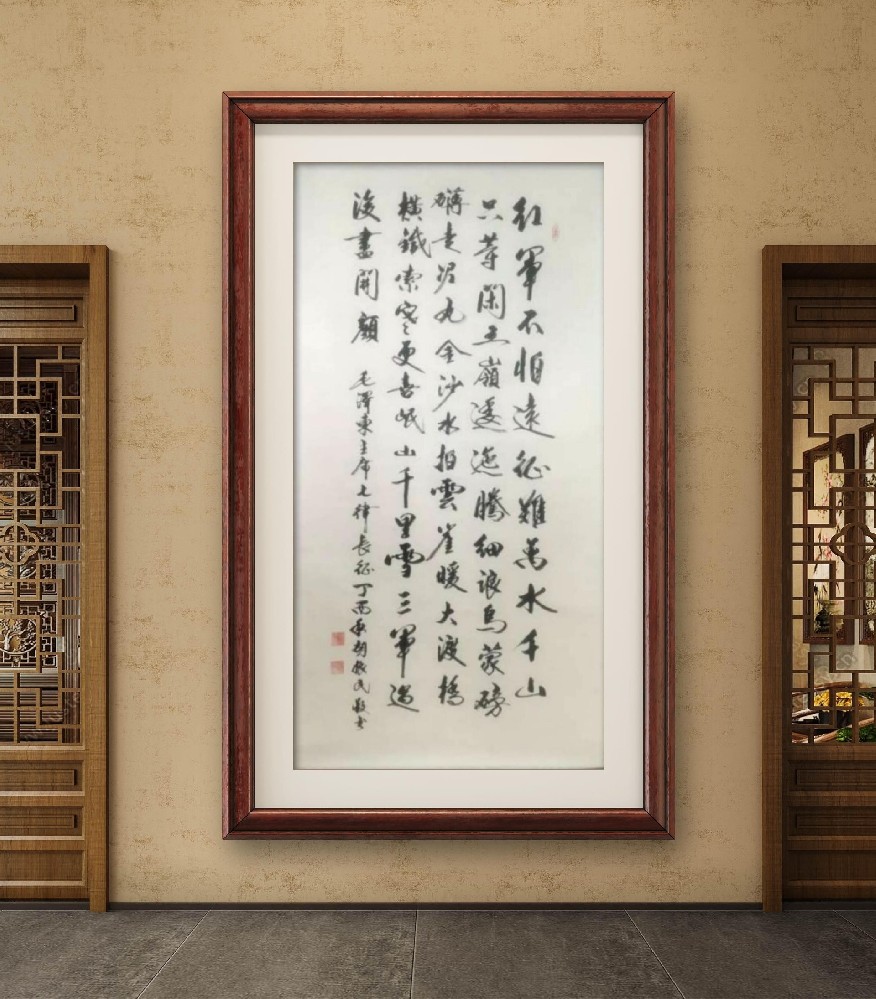 紅軍不怕遠征難萬水千山
只等閑五嶺逶迤騰細浪烏蒙磅
礴走泥丸金沙水拍雲崖暖大渡橋
橫鐵索寒更喜岷山千里雪三軍過
後盡開顏 毛澤東主席七律長征丁酉秋胡民敬書